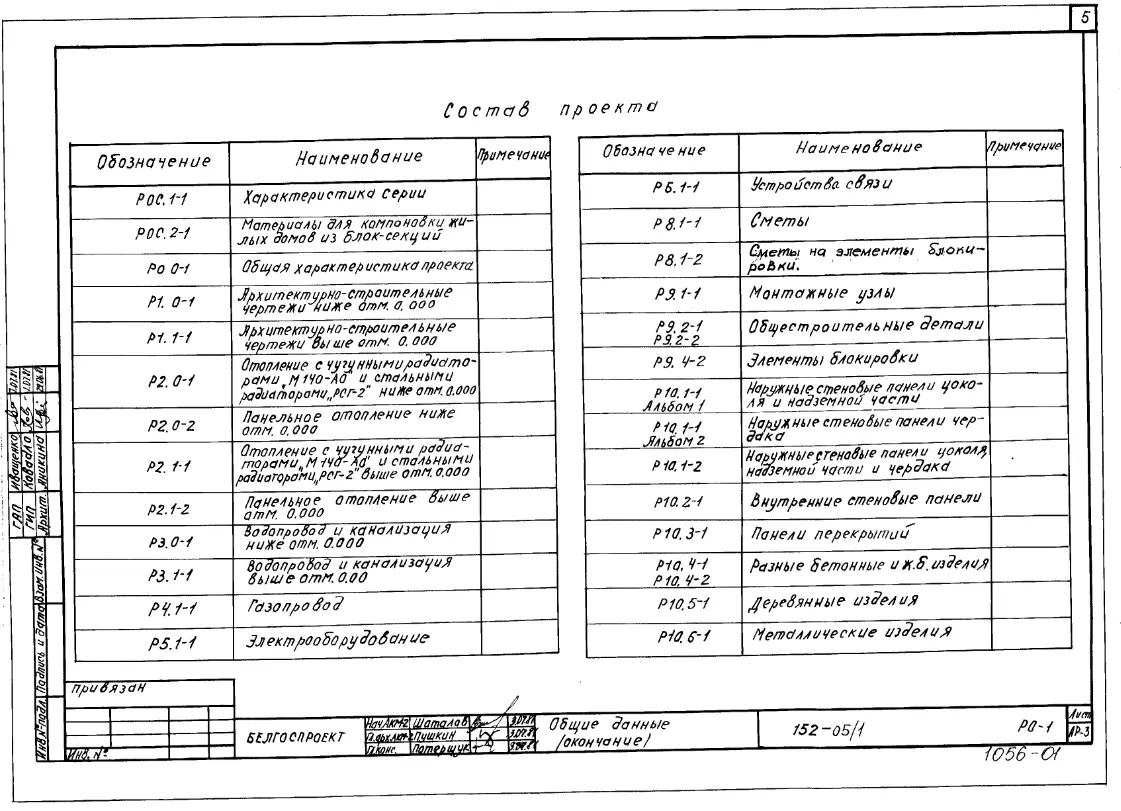 5
Состав проекта
Обозначение Наименование Примечание
РОС.1-1 Характеристика серии
РОС.2-1 Материалы для компоновки жи-
лых домов из блок-секций
Ро 0-1 Общая характеристика проекта
Р1. 0-1 Архитектурно-строительные
чертежи ниже отм. 0.000
Р1. 1-1 Архитектурно-строительные
чертежи выше отм. 0.000
Р2. 0-1 Отопление с чугунными радиато-
рами „М140-АО" и стальными
радиаторами „РСГ-2" ниже отм.0.000
Р2.0-2 Панельное отопление ниже
отм. 0.000
Р2. 1-1 Отопление с чугунными радиа-
торами „М140-АО" и стальными
радиаторами „РСГ-2" выше отм.0.000
Р2.1-2 Панельное отопление выше
отм. 0.000
Р3.0-1 Водопровод и канализация
ниже отм. 0.000
Р3.1-1 Водопровод и канализация
выше отм. 0.00
Р4.1-1 Газопровод
Р5.1-1 Электрооборудование
Обозначение Наименование Примечание
Р6.1-1 Устройства связи
Р8.1-1 Сметы
Р8.1-2 Сметы на элементы блоки-
ровки.
Р9.1-1 Монтажные узлы
Р9.2-1 Общестроительные детали
Р9.2-2
Р9. 4-2 Элементы блокировки
Р10.1-1 Наружные стеновые панели цоко-
Альбом 1 ля и надземной части
Р10.1-1 Наружные стеновые панели чер-
Альбом 2 дака
Р10.1-2 Наружные стеновые панели цоколя,
надземной части и чердака
Р10.2-1 Внутренние стеновые панели
Р10.3-1 Панели перекрытий
Р10.4-1 Разные бетонные и ж.б.изделия
Р10.4-2
Р10.5-1 Деревянные изделия
Р10.6-1 Металлические изделия
ГАП Иващенко
ГИП
Архит. Аникина
Инв.№ подл. Подпись и дата Взам.инв.№
Привязан
Инв. №
БЕЛГОСПРОЕКТ
Нач.АКМ-2 Шаталов
Гл.арх.АКМ-2 Пушкин
Н.конс. Потерщук
Общие данные
(окончание)
152-05/1
Р0-1
Лист
АР-3
1056-01